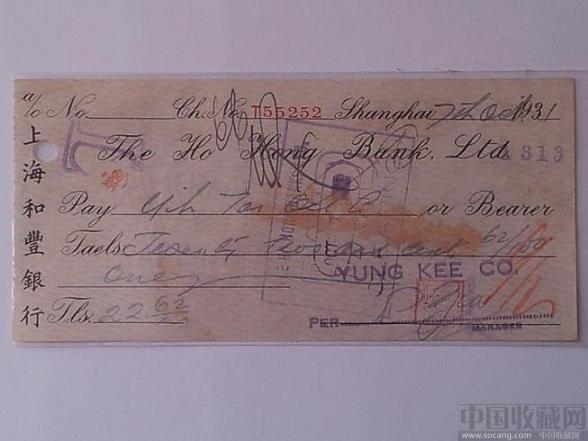 a/c No. Ch. No. T55252 Shanghai 7th Oct 1931
The Ho Hong Bank, Ltd. 313
Pay or Bearer
Taels Twenty two and cent 62/100
only
YUNG KEE CO.
Tls. 22 62
PER
MANAGER
上海和豐銀行
中国收藏网
www.socang.com 中国收藏网